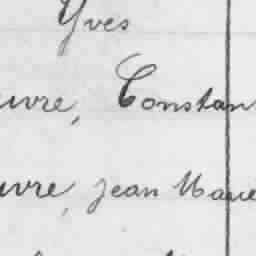 Yves
uvre, Constan
uvre, jean Marie